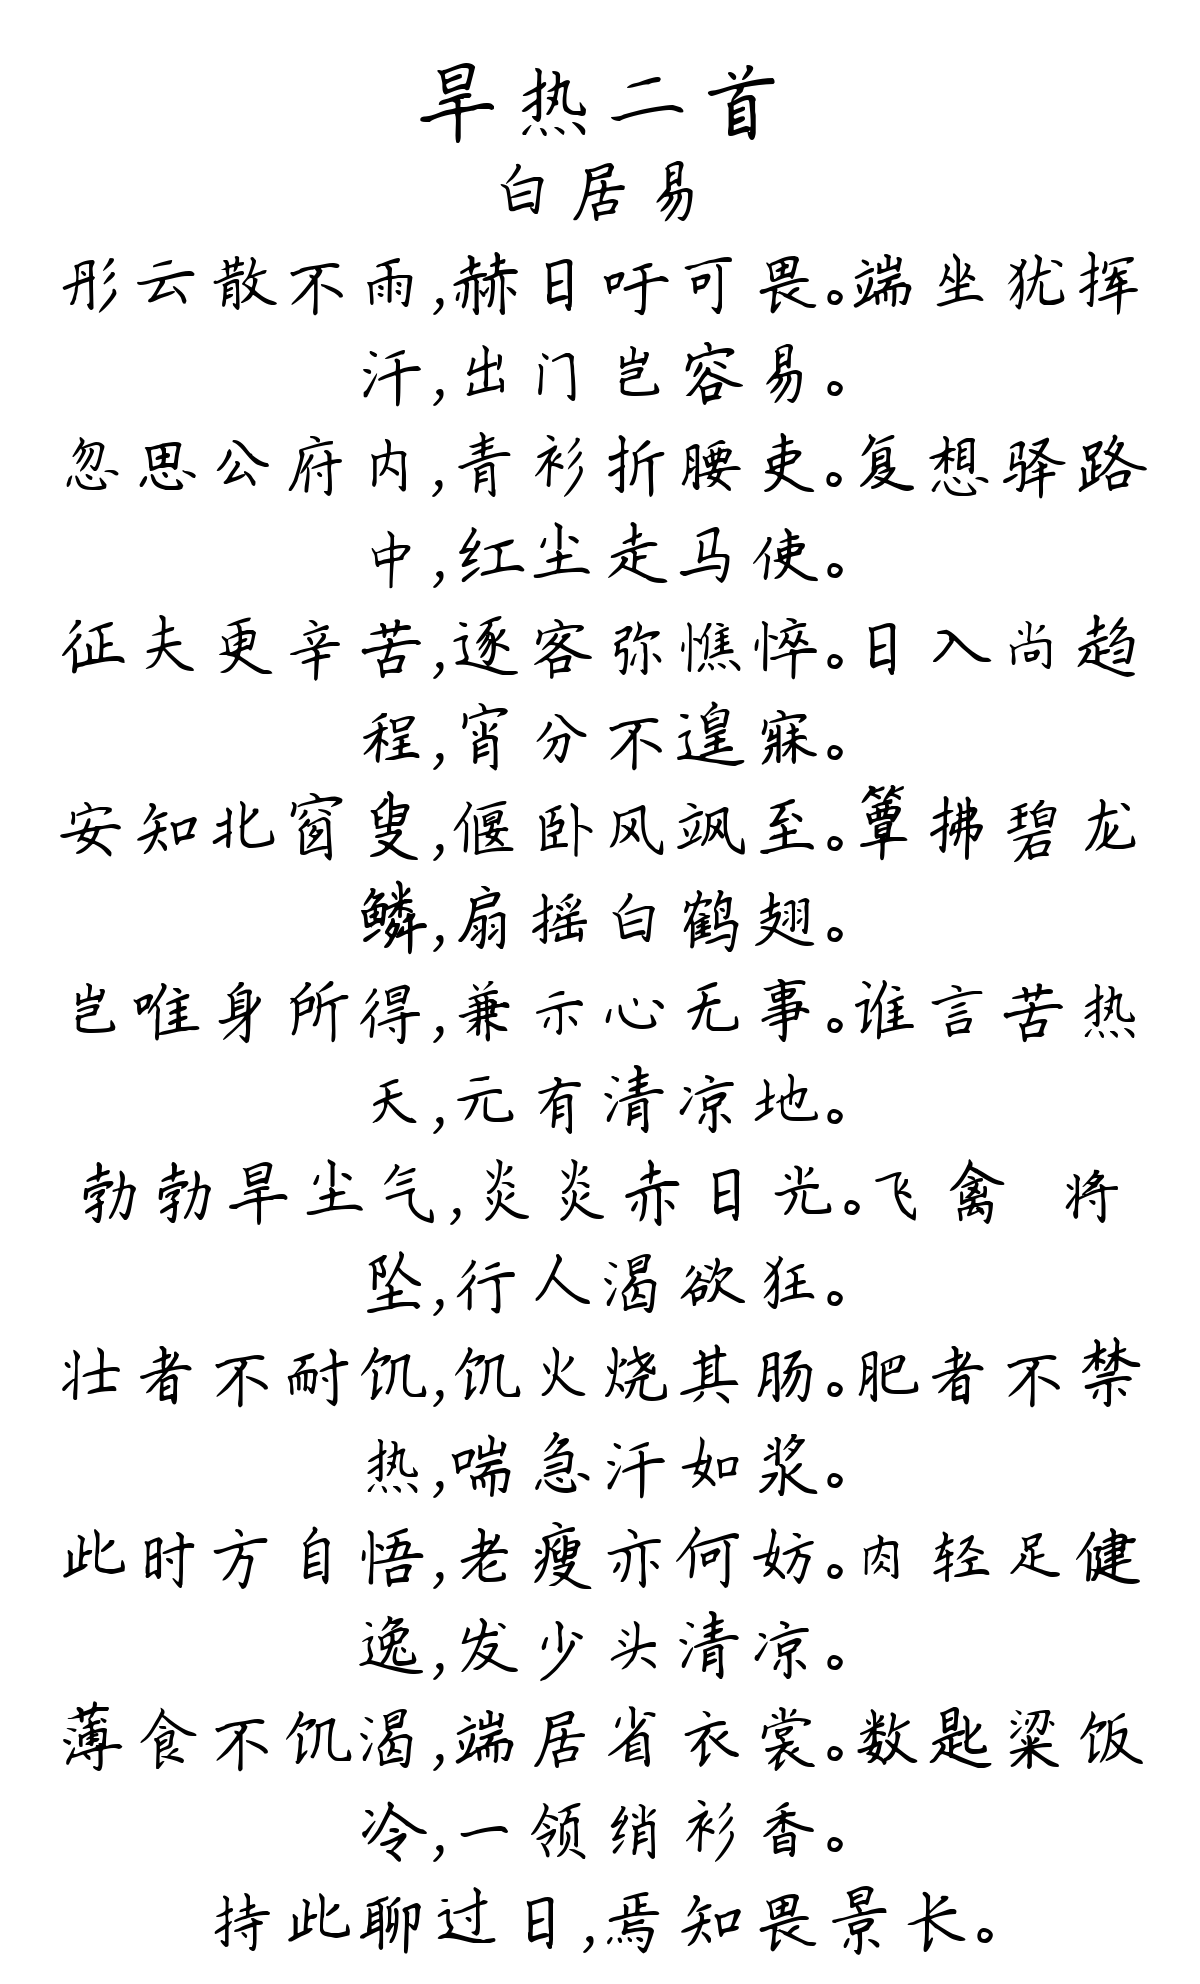 旱热二首
白居易
彤云散不雨,赫日吁可畏。端坐犹挥
汗,出门岂容易。
忽思公府内,青衫折腰吏。复想驿路
中,红尘走马使。
征夫更辛苦,逐客弥憔悴。日入尚趋
程,宵分不遑寐。
安知北窗叟,偃卧风飒至。簟拂碧龙
鳞,扇摇白鹤翅。
岂唯身所得,兼示心无事。谁言苦热
天,元有清凉地。
勃勃旱尘气,炎炎赤日光。飞禽 将
坠,行人渴欲狂。
壮者不耐饥,饥火烧其肠。肥者不禁
热,喘急汗如浆。
此时方自悟,老瘦亦何妨。肉轻足健
逸,发少头清凉。
薄食不饥渴,端居省衣裳。数匙粱饭
冷,一领绡衫香。
持此聊过日,焉知畏景长。